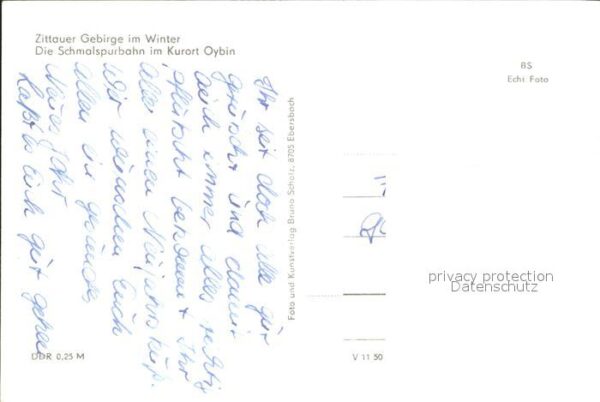 Zittauer Gebirge im Winter
Die Schmalspurbahn im Kurort Oybin
BS
Echt Foto
Ihr seit doch alle gut
gerutscht und damit
euch immer alles
Ihr
alle einen Neujahrskuß.
Wir wünschen Euch
allen ein gesundes
Neues Jahr
Laßt es Euch gut gehen
Foto und Kunstverlag Bruno Scholz, 8705 Ebersbach
privacy protection
Datenschutz
DDR 0,25 M
V 11 50